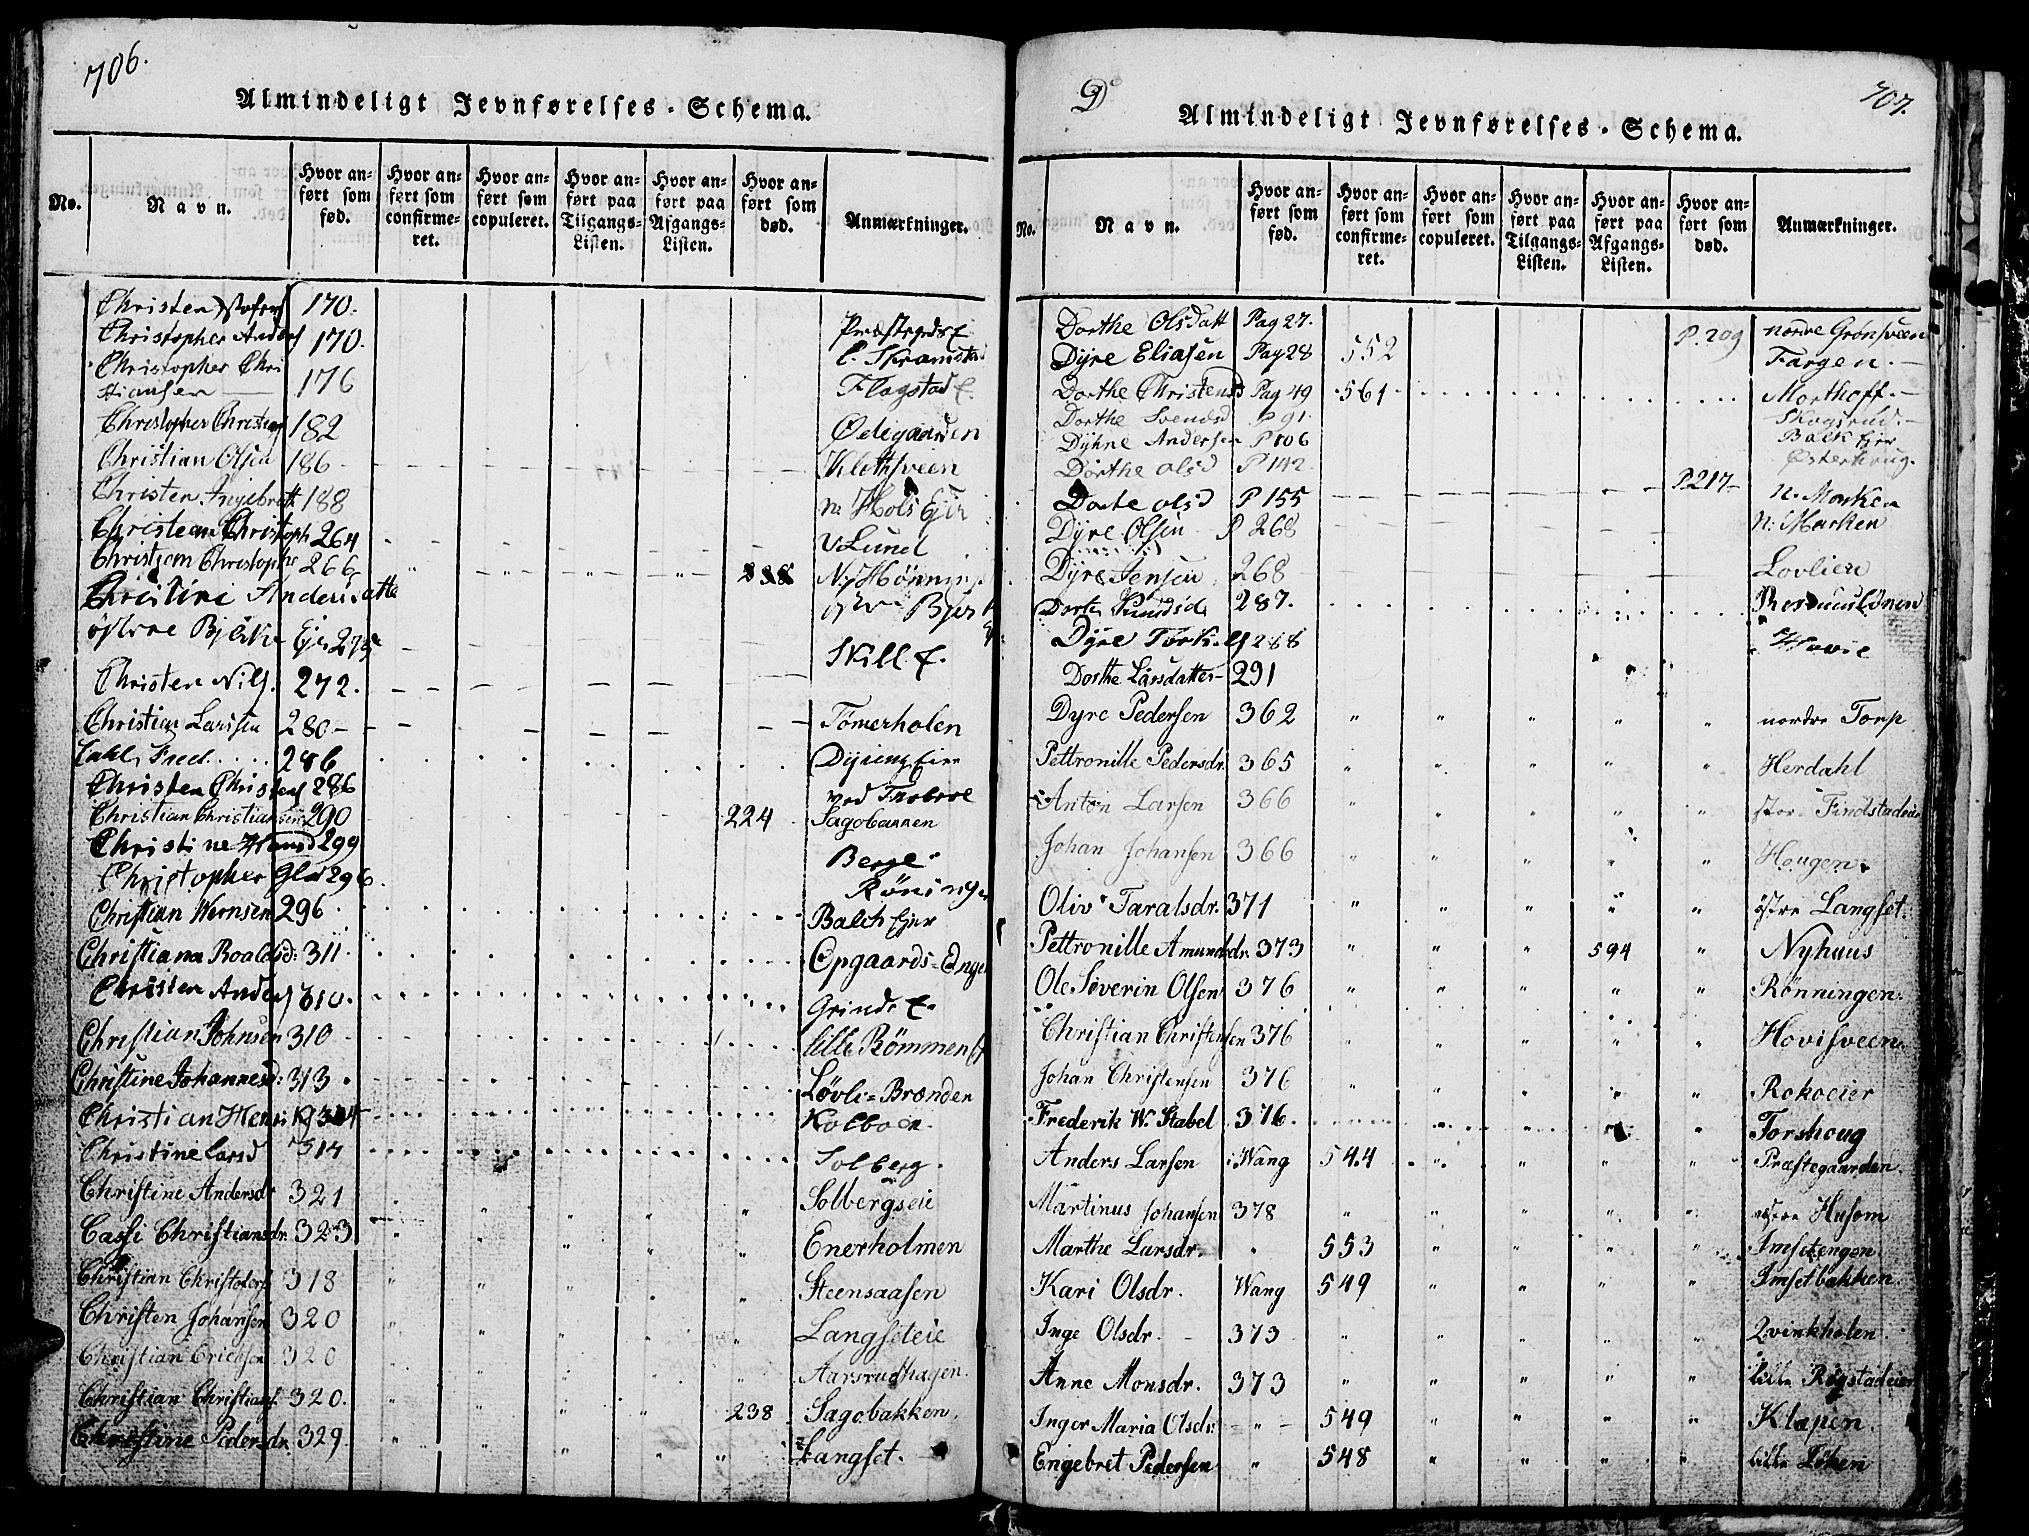 706.
Almindeligt Jevnførelses-Schema.
No. Navn. Hvor anført som fød. Hvor anført som confirmeret. Hvor anført som copuleret. Hvor anført paa Tilgangs-Listen. Hvor anført paa Afgangs-Listen. Hvor anført som død. Anmærkninger.
Christen 170.
Christopher Anders 170. Præstegrds E.
Christopher Chri E. Skramstad
stiansen 176 Flagstad E.
Christopher Christians 182 Ødegaarden
Christian Olsen 186 Klethsveen
Christen Ingebrett 188 n: Hols Ejer
Christean Christoph 264 V Lund
Christian Christophe 266 238
Christine Andersdatter
østere Bjerke Eje 275 Skill E.
Christen Nils. 272.
Christian Larsen 280 Tømerholen
Carl Fred. 286
Christen Christens 286 ved
Christian Christiansen 290 224 Sagobannen
Christine Hansd 299 Berge
Christopher Glo 296. Røningen
Christian Wernsen 296 Balch Ejer
Christiana Roaldsd: 311 Opgaards-Enge
Christen Anders 310. Grinde E.
Christian Johnsen 310 lille Rømmen E
Christine Johannesd: 313. Løvli-Brænden
Christian Henrik 314 Kolboen.
Christine Larsd 314 Solberg.
Christine Andersdr 321 " " " " Solbergseie
Cassi Christiansdr. 323 " " " " " Enerholmen
Christian Christofers 318 " " " " " Steensaasen
Christen Johansen 320 " " " " " Langseteie
Christian Erichsen 320 " " " " " Aarsrudhagen.
Christian Christians. 320. " " " " 238 Sagobakken.
Christine Pedersdr. 329. " " " " " Langset.
D
707.
Almindeligt Jevnførelses-Schema.
No. Navn. Hvor anført som fød. Hvor anført som confirmeret. Hvor anført som copuleret. Hvor anført paa Tilgangs-Listen. Hvor anført paa Afgangs-Listen. Hvor anført som død. Anmærkninger.
Dorthe Olsdatt Pag 27. P. 209 nordre Grønsveen
Dyre Eliasen Pag 28 552 Fargen.
Dorthe Christensd Pag 49 561 Morthoff.
Dorthe Svendsd P 91. Skogsrud.
Dyhne Andersen P 106 Balk Ejer
Dorthe Olsd P 142. Østerhoug.
Dorte Olsd P 155 P. 217 N: Marken
Dyre Olsen P 268 N: Marken
Dyre Jensen 268 Lovlien
Dorte 287.
Dyre Tork. 288 Hovie
Dorthe Larsdatter 291
Dyre Pedersen 362 " " " " " nordre Torp
Pettronille Pedersdr. 365 " " " " " Herdahl
Anton Larsen 366 " " " " " stor Findstadeie
Johan Johansen 366 " " " " " Hougen.
Oliv Taralsdr. 371 " " " " " østre Langset.
Pettronille Amundsdr. 373 " " " 594 " Nyhuus
Ole Søverin Olsen 376 " " " " " Rønningen.
Christian Christensen 376 " " " " " Hovisveen.
Johan Christensen 376 " " " " " Rokoeier
Frederik W. Stabel 376. " " " " Torshoug
Anders Larsen i Wang 544 " " " " Præstegaarden.
Martinus Johansen 378 " " " " " østre Husom
Marthe Larsdr. " 553 " " " " Imsetengen.
Kari Olsdr. Wang 549 " " " " Imsetbakken.
Inge Olsdr. 373 " " " " " Qvinkholen.
Anne Monsdr. 373 " " " " " lille Rogstadeier
Inger Maria Olsdr. " 549 " " " " Klapen.
Engebret Pedersen " 548 " " " " lille Løken